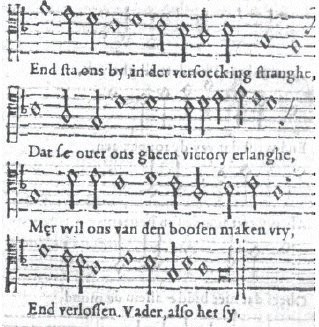 End sta ons by, in der versoecking stranghe,
Dat se ouer ons gheen victory erlanghe,
Mer wil ons van den boosen maken vry,
End verlossen. Vader, also het sy.